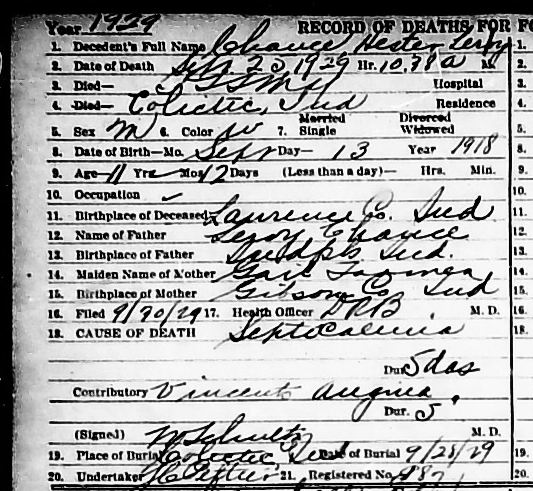 Year 1929 RECORD OF DEATHS FOR FO
1. Decedent's Full Name Chance Hester Leroy 1.
2. Date of Death Sept. 25 1929 Hr. 10.38 a M. 2.
3. Died— Hospital 3.
4. Died— Eclectic, Ind Residence 4.
5. Sex M 6. Color W 7. Married Single Divorced Widowed 5.
8. Date of Birth—Mo. Sept Day— 13 Year 1918 8.
9. Age 11 Yrs. Mos. 12 Days (Less than a day)— Hrs. Min. 9.
10. Occupation 10.
11. Birthplace of Deceased Lawrence Co. Ind 11.
12. Name of Father Leroy Chance 12.
13. Birthplace of Father Ind. 13.
14. Maiden Name of Mother 14.
15. Birthplace of Mother Gibson Co Ind 15.
16. Filed 9/30/29 17. Health Officer DRB M. D. 16.
18. CAUSE OF DEATH Septocaemia 18.
Dur. 5 das
Contributory Vincents Angina.
Dur. 5
(Signed) W Schultz M. D.
19. Place of Burial Eclectic Ind Date of Burial 9/28/29 19.
20. Undertaker 21. Registered No. 20.